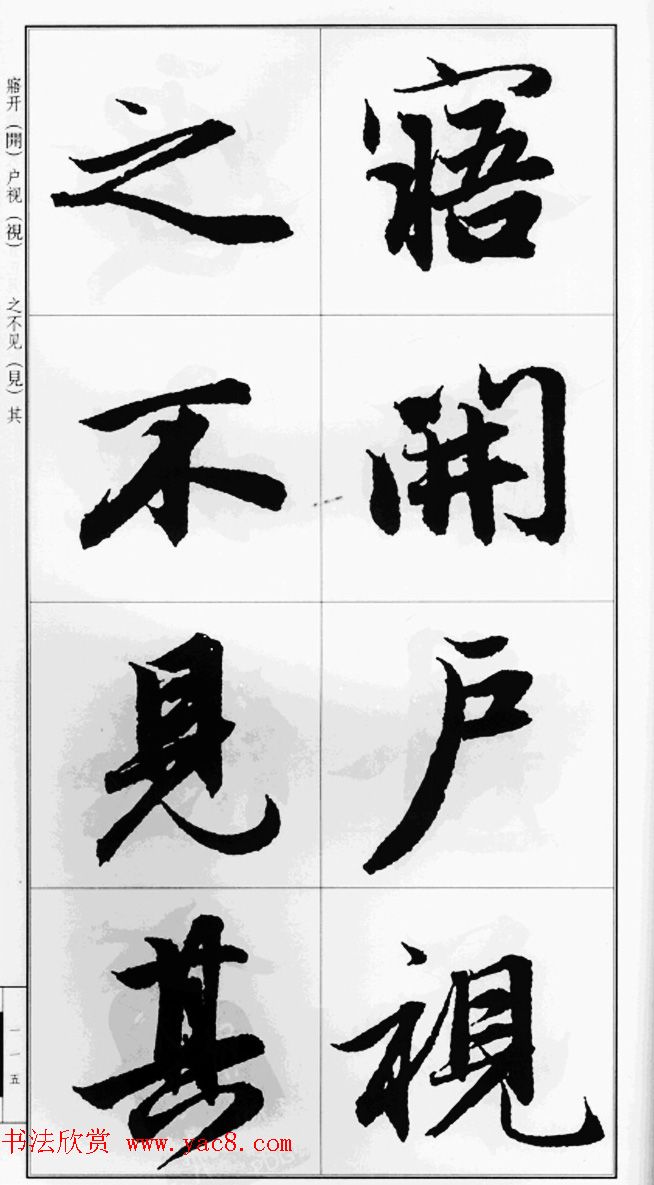 寤開户視
之不見其
寤开（開）户视（視） 之不见（見）其
一一五
书法欣赏 www.yac8.com